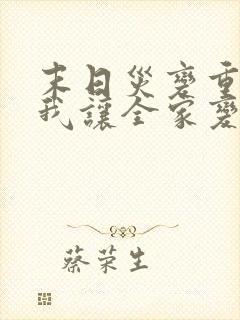 末日災變重
我讓全家變
蔡荣生